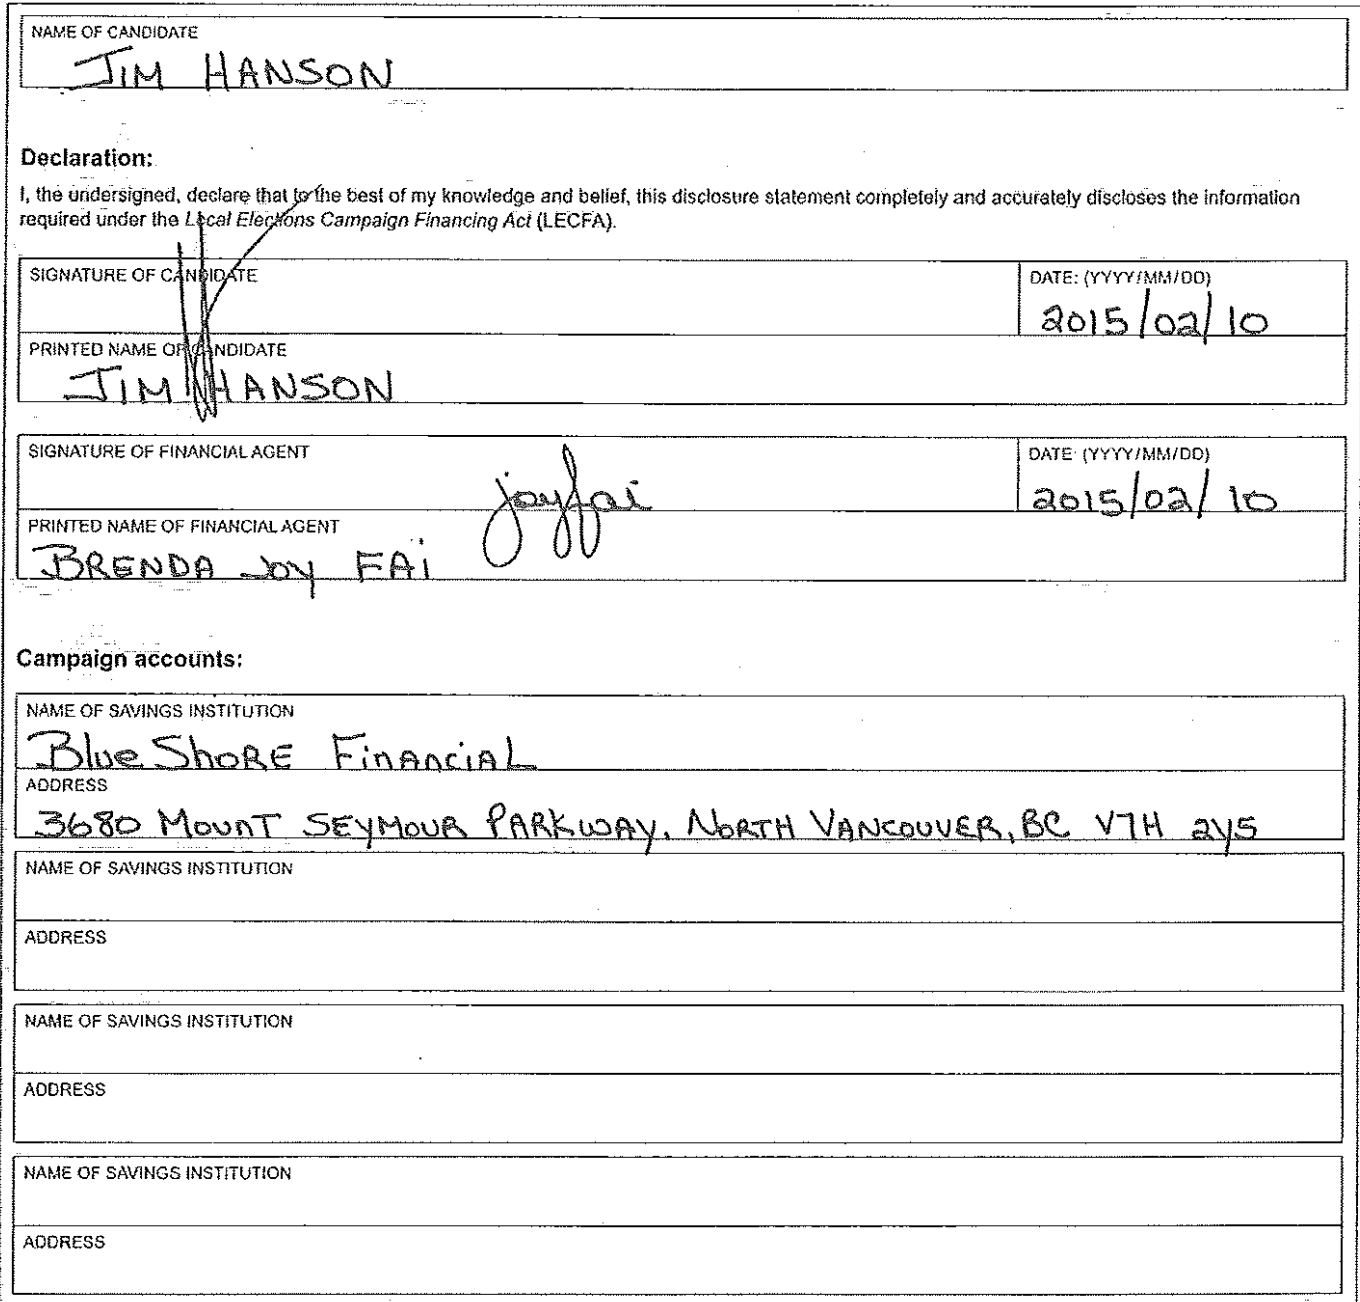 NAME OF CANDIDATE
JIM HANSON
Declaration:
I, the undersigned, declare that to the best of my knowledge and belief, this disclosure statement completely and accurately discloses the information
required under the Local Elections Campaign Financing Act (LECFA).
SIGNATURE OF CANDIDATE
DATE: (YYYY/MM/DD)
2015/02/10
PRINTED NAME OF CANDIDATE
JIM HANSON
SIGNATURE OF FINANCIAL AGENT
joyfai
DATE: (YYYY/MM/DD)
2015/02/10
PRINTED NAME OF FINANCIAL AGENT
BRENDA JOY FAi
Campaign accounts:
NAME OF SAVINGS INSTITUTION
BlueShoRE FinAnciAL
ADDRESS
3680 MOUNT SEYMOUR PARKWAY, NORTH VANCOUVER, BC V7H 2Y5
NAME OF SAVINGS INSTITUTION
ADDRESS
NAME OF SAVINGS INSTITUTION
ADDRESS
NAME OF SAVINGS INSTITUTION
ADDRESS